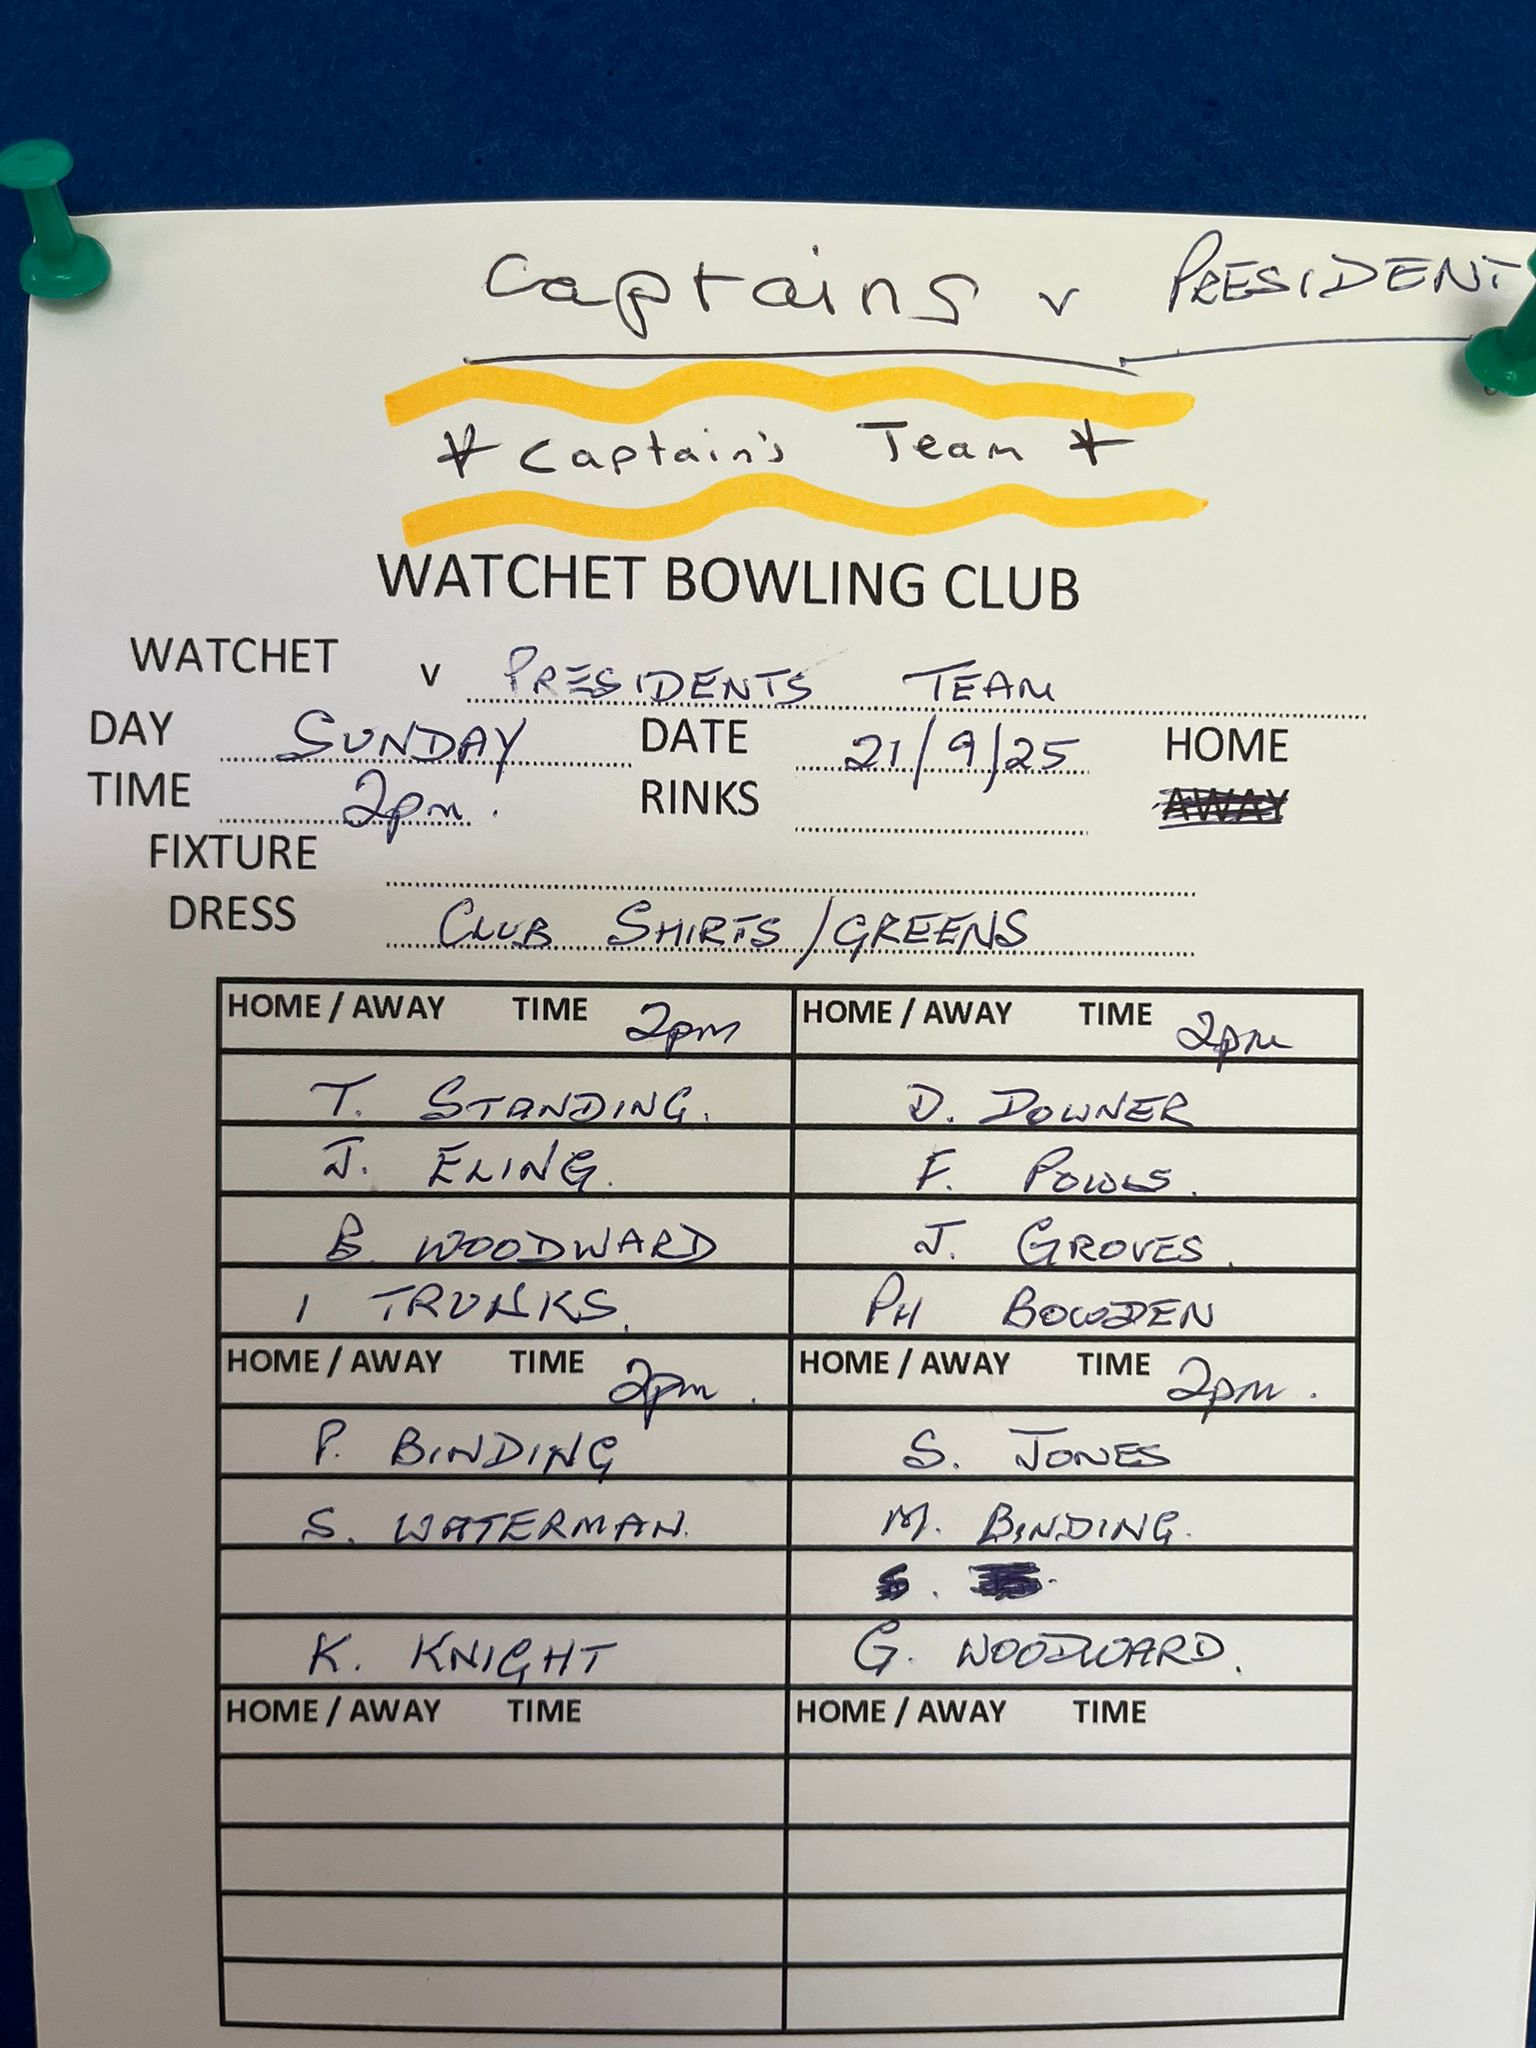 Captains v PRESIDENT
* Captain's Team *
WATCHET BOWLING CLUB
WATCHET v PRESIDENTS TEAM
DAY SUNDAY DATE 21/9/25 HOME
TIME 2pm. RINKS AWAY
FIXTURE
DRESS CLUB SHIRTS / GREENS
HOME / AWAY TIME 2pm HOME / AWAY TIME 2pm
T. STANDING. D. DOWNER
J. ELING. F. POWLS.
B. WOODWARD J. GROVES.
I TRUNKS. PH BOWDEN
HOME / AWAY TIME 2pm. HOME / AWAY TIME 2pm.
P. BINDING S. JONES
S. WATERMAN. M. BINDING.
K. KNIGHT G. WOODWARD.
HOME / AWAY TIME HOME / AWAY TIME